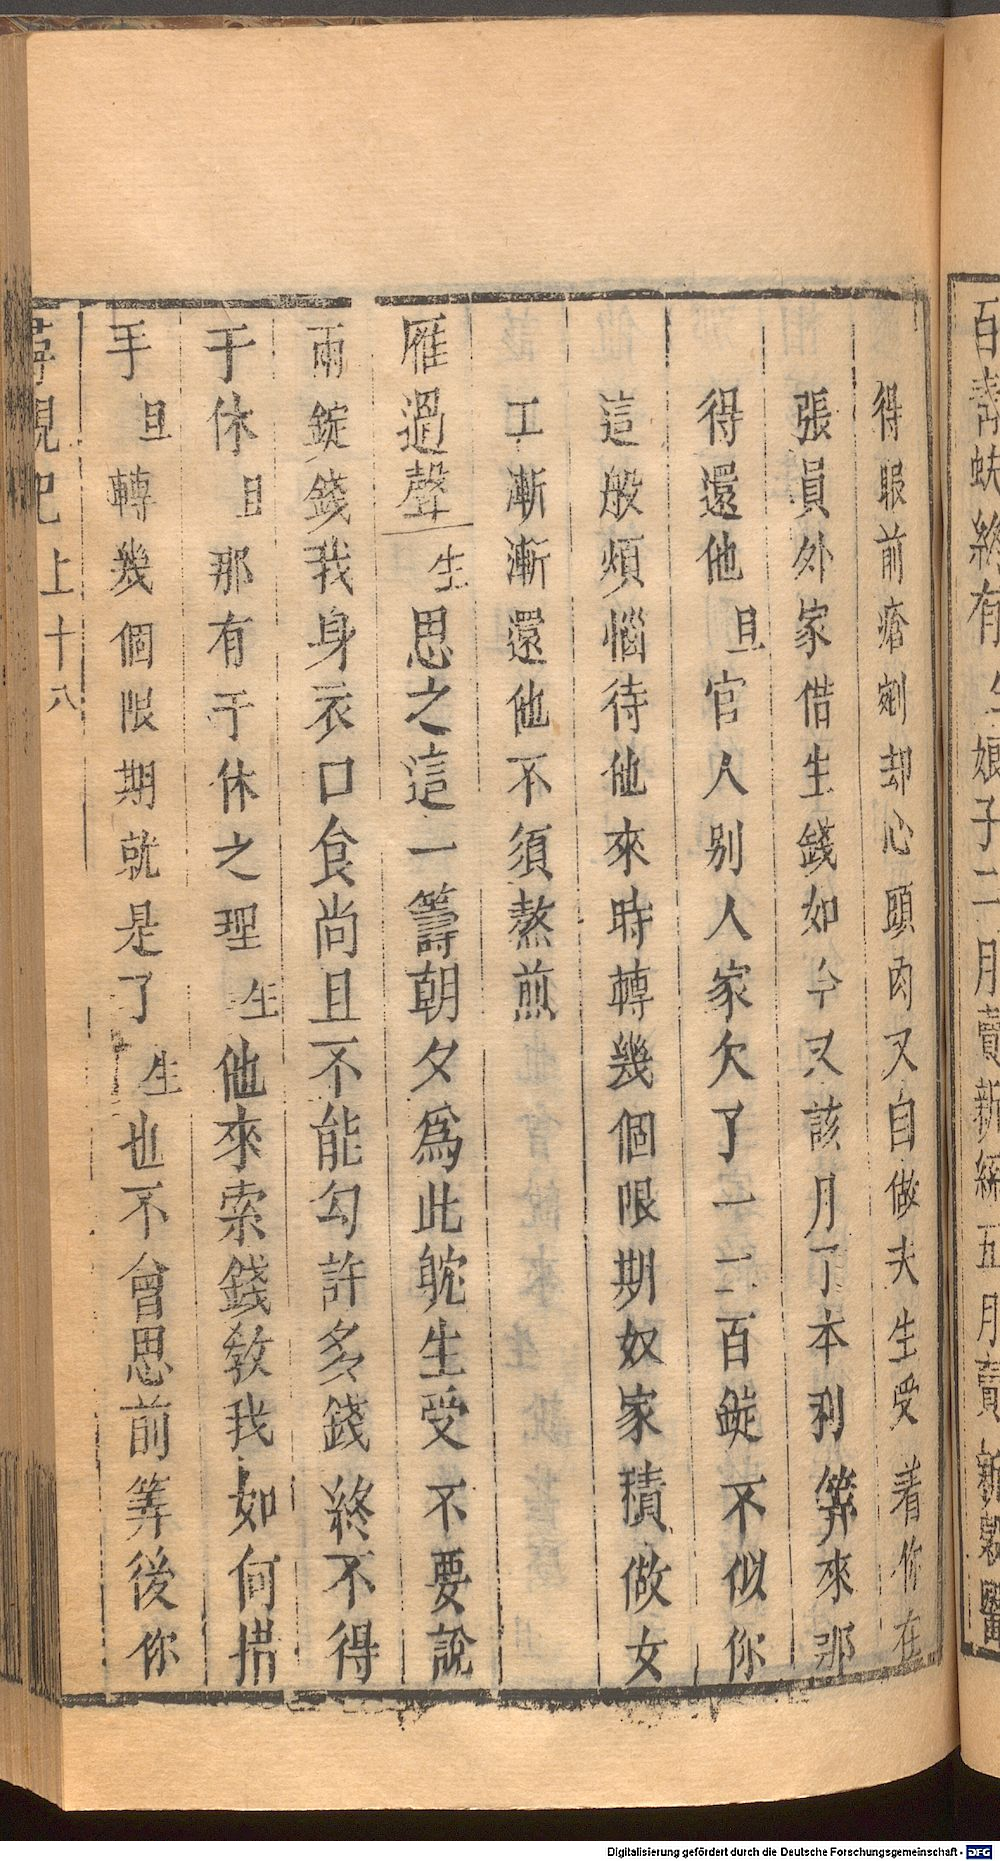 百青蚨終有生娘子二月賣新絲五月賣新穀醫
得眼前瘡剜却心頭肉又自做夫生受着你在
張員外家借生錢如今又該月了本利筭來那
得還他旦官人别人家欠了一二百錠不似你
這般煩惱待他來時轉幾個限期奴家積做女
工漸漸還他不須熬煎
雁過聲生思之這一籌朝夕爲此躭生受不要説
兩錠錢我身衣口食尚且不能勾許多錢終不得
干休旦那有干休之理生他來索錢教我如何措
手旦轉幾個限期就是了生也不曾思前筭後你
尋親記上十八
Digitalisierung gefördert durch die Deutsche Forschungsgemeinschaft - DFG